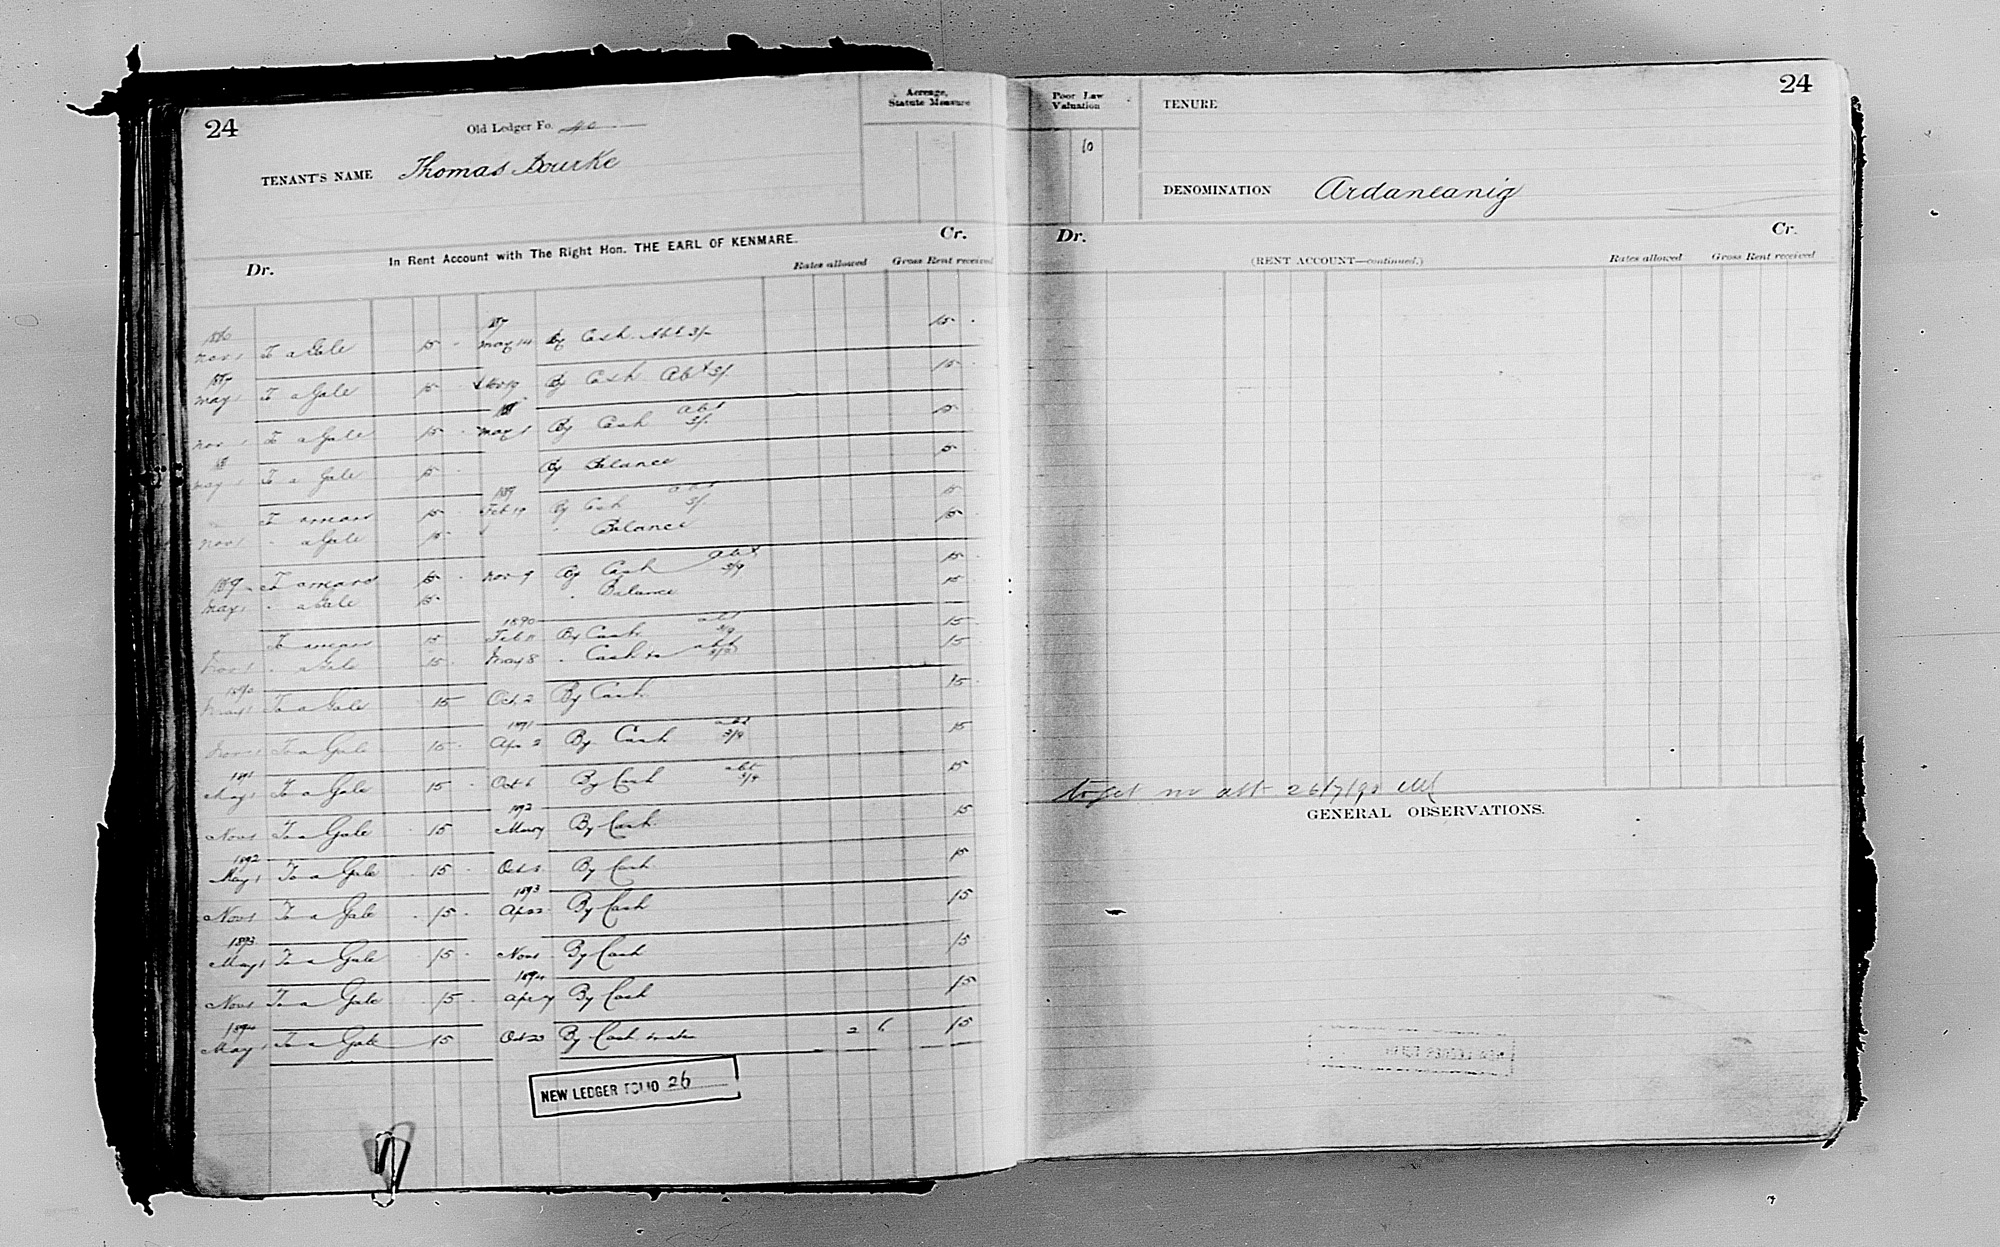 24
Old Ledger Fo. 40
Acreage, Statute Measure
TENANT'S NAME Thomas Bourke
In Rent Account with The Right Hon. THE EARL OF KENMARE.
Dr. Cr.
Rates allowed Gross Rent received
1886 1887
Nov 1 To a Gale 15 - May 14 By Cash Abt 3/- 15 -
1887
May 1 To a Gale 15 - Nov 19 By Cash Abt 3/- 15 -
188
Nov 1 To a Gale 15 - May 1 By Cash abt 3/- 15 -
May 1 To a Gale 15 - By Balance 15 -
1889
To arrears 15 - Feb 19 By Cash abt 3/- 15
Nov 1 " a Gale 15 - " Balance 15 -
1889 To arrears 15 - Nov 9 By Cash abt 3/9 15 -
May 1 " a Gale 15 - " Balance 15 -
1890
To arrears 15 Feb 11 By Cash abt 3/9 15 -
Nov 1 " a Gale 15 - May 8 " Cash abt 3/9 15 -
1890
May 1 To a Gale 15 Oct 2 By Cash 15 -
1891
Nov 1 To a Gale 15 - Apr 2 By Cash abt 3/9 15
1891
May 1 To a Gale 15 - Oct 6 By Cash abt 3/9 15
1892
Nov 1 To a Gale 15 May By Cash 15
1892
May 1 To a Gale 15 - Oct By Cash 15
1893
Nov 1 To a Gale 15 - Apr 22 By Cash 15
1893
May 1 To a Gale 15 - Nov 1 By Cash 15
1894
Nov 1 To a Gale 15 - Apr By Cash 15
1894
May 1 To a Gale 15 Oct 20 By Cash 2 6 15
NEW LEDGER FOLIO 26
24
Poor Law Valuation
10
TENURE
DENOMINATION Ardaneanig
Dr. Cr.
(RENT ACCOUNT—continued.)
Rates allowed Gross Rent received
to get no abt 26/7/90
GENERAL OBSERVATIONS.